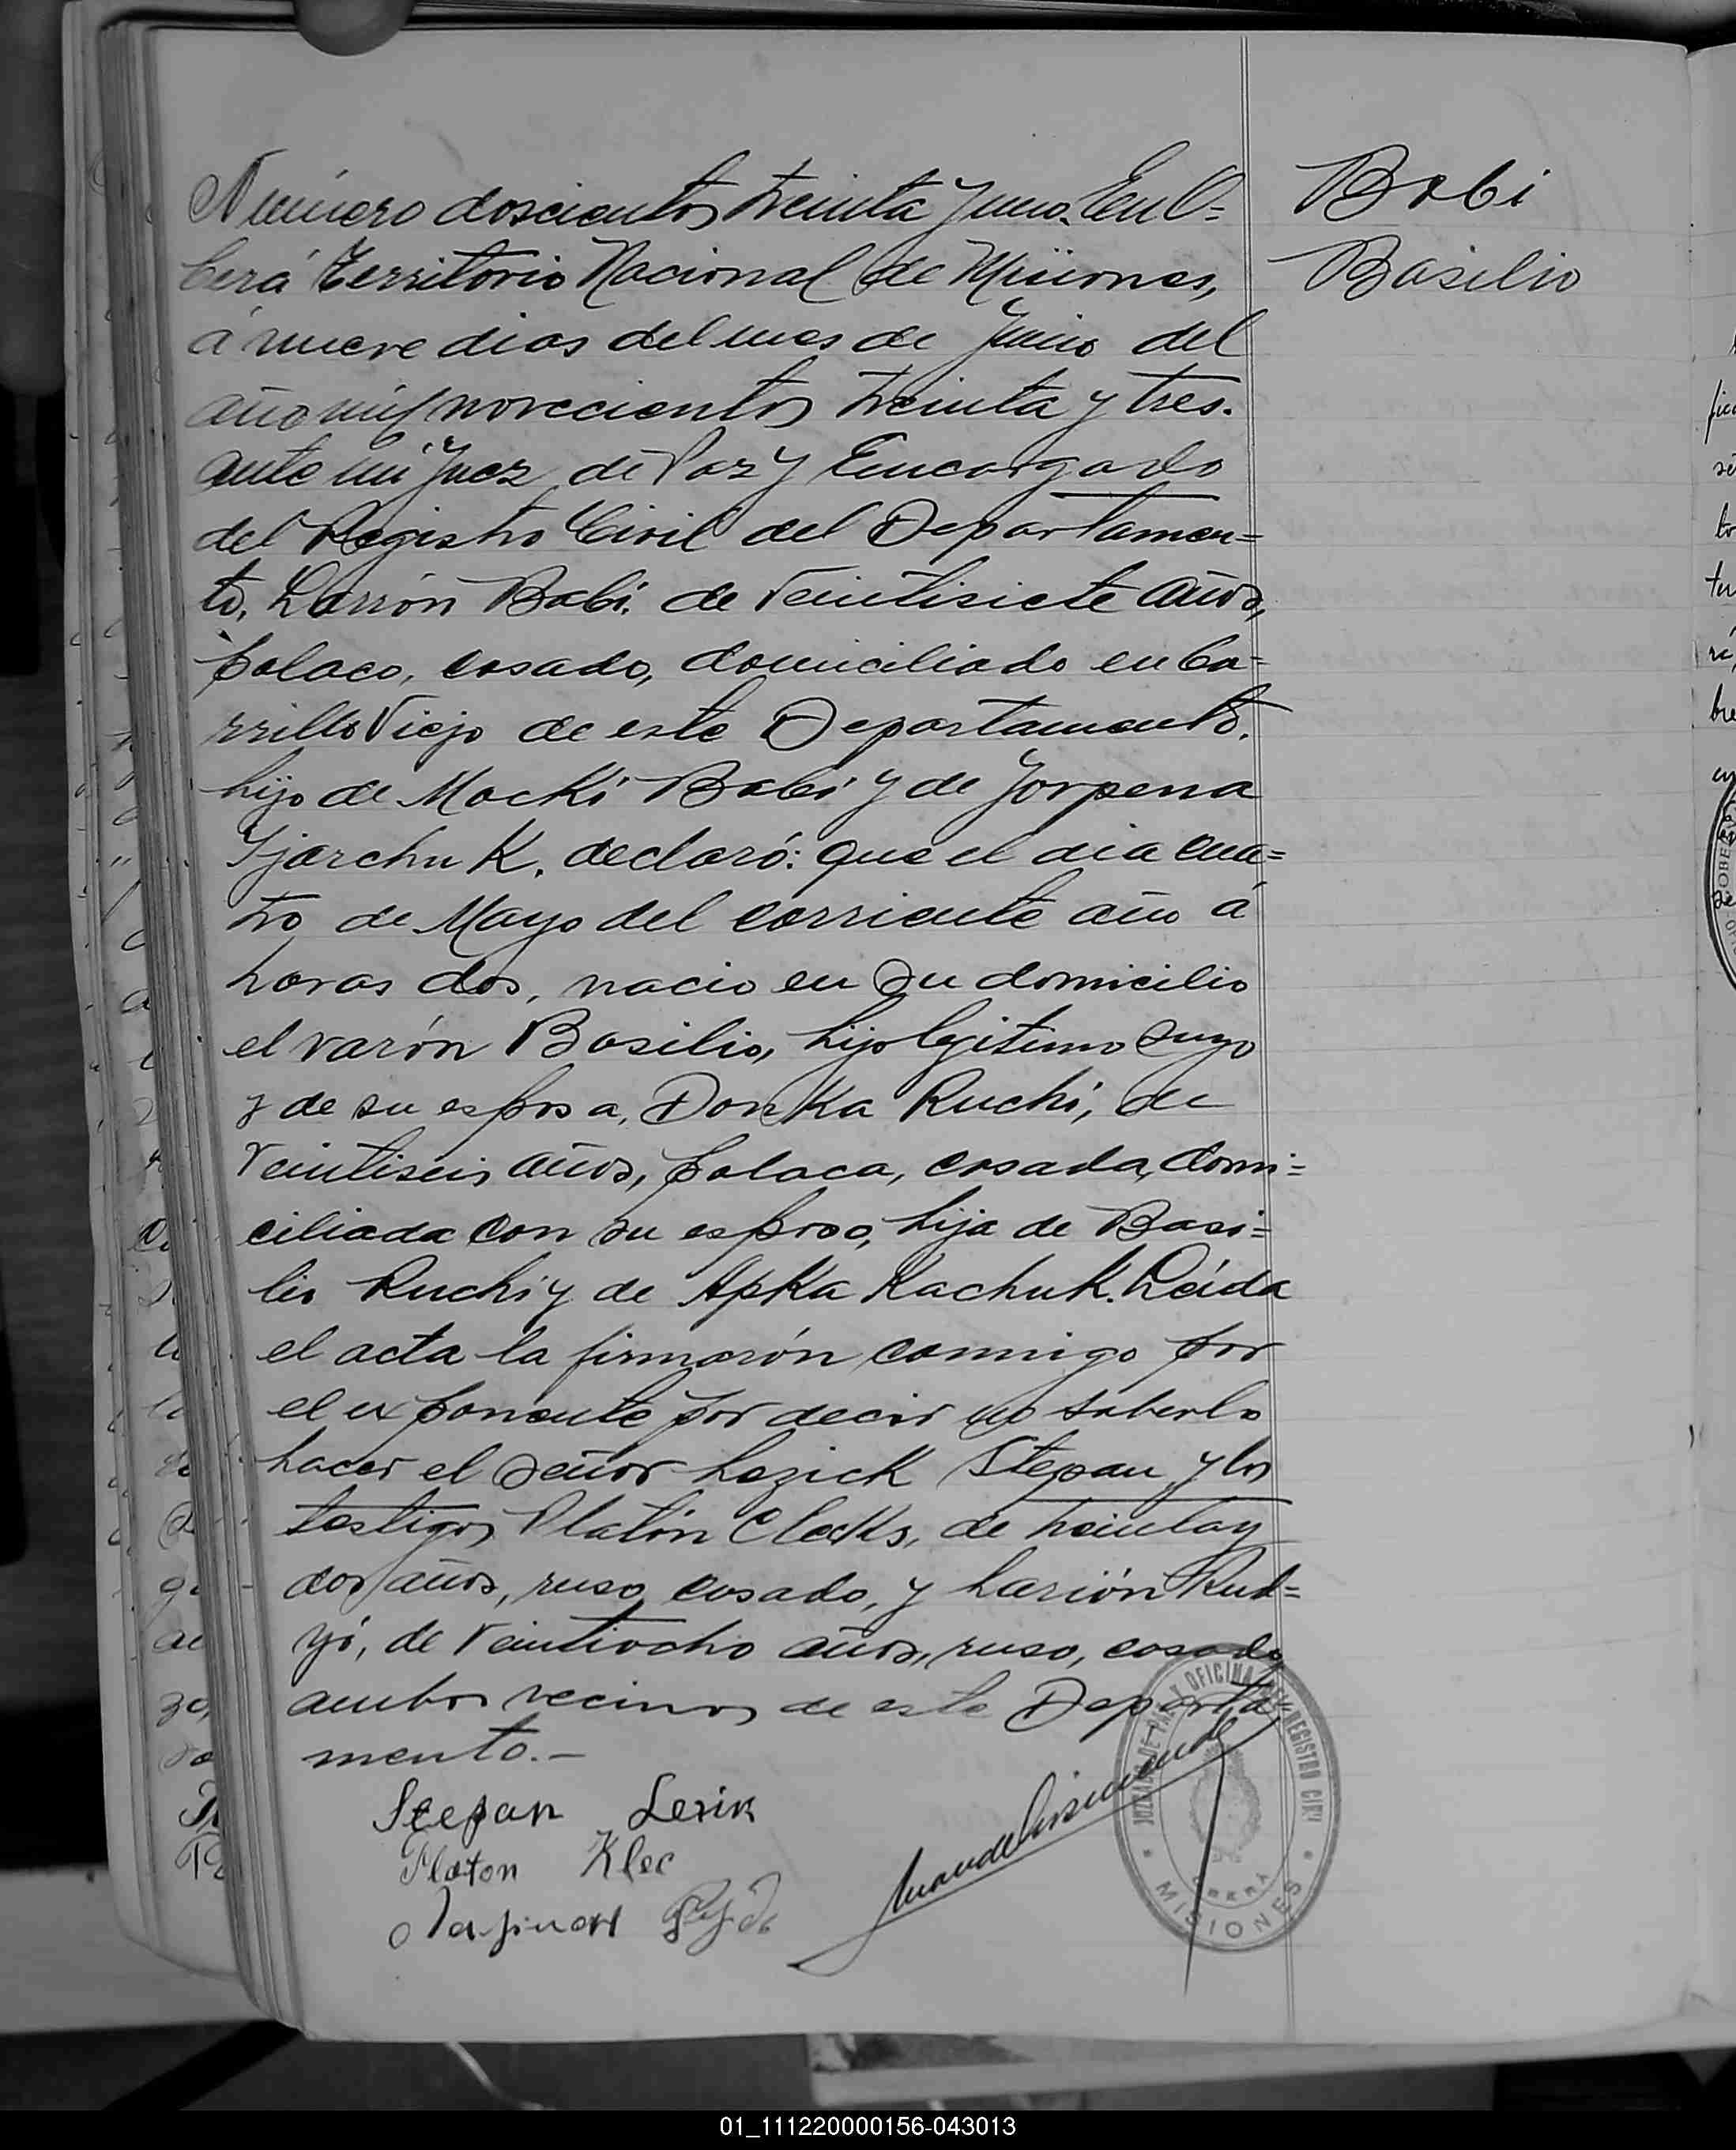 Número doscientos treinta y uno. En O=
berá Territorio Nacional de Misiones,
á nueve dias del mes de Junio del
año mil novecientos treinta y tres.
ante mi Juez de Paz y Encargado
del Registro Civil del Departamen=
to, Larión Babi. de veintisiete años,
polaco, casado, domiciliado en Ca=
rrillo Viejo de este Departamento.
hijo de Mocki Babi y de Jorpena
Tjarchuk. declaró: que el dia cua=
tro de Mayo del corriente año á
horas dos, nacio en su domicilio
el varón Basilio, hijo legitimo suyo
y de su esposa, Donka Ruchi, de
veintiseis años, polaca, casada, domi=
ciliada con su esposo, hija de Basi=
lio Ruchi y de Apka Kachuk. Leida
el acta la firmarón conmigo por
el exponente por decir no saberlo
hacer el señor Lezick Stepan y los
testigos Platón Clecks, de treinta y
dos años, ruso casado, y Larión Rud=
yi, de veintiocho años, ruso, casado
ambos vecinos de este Departa=
mento.-
Stepan Lezik
Platon Klec
Babi
Basilio
JUZGADO DE PAZ Y OFICINA DEL REGISTRO CIVIL
OBERÁ
MISIONES
01_111220000156-043013